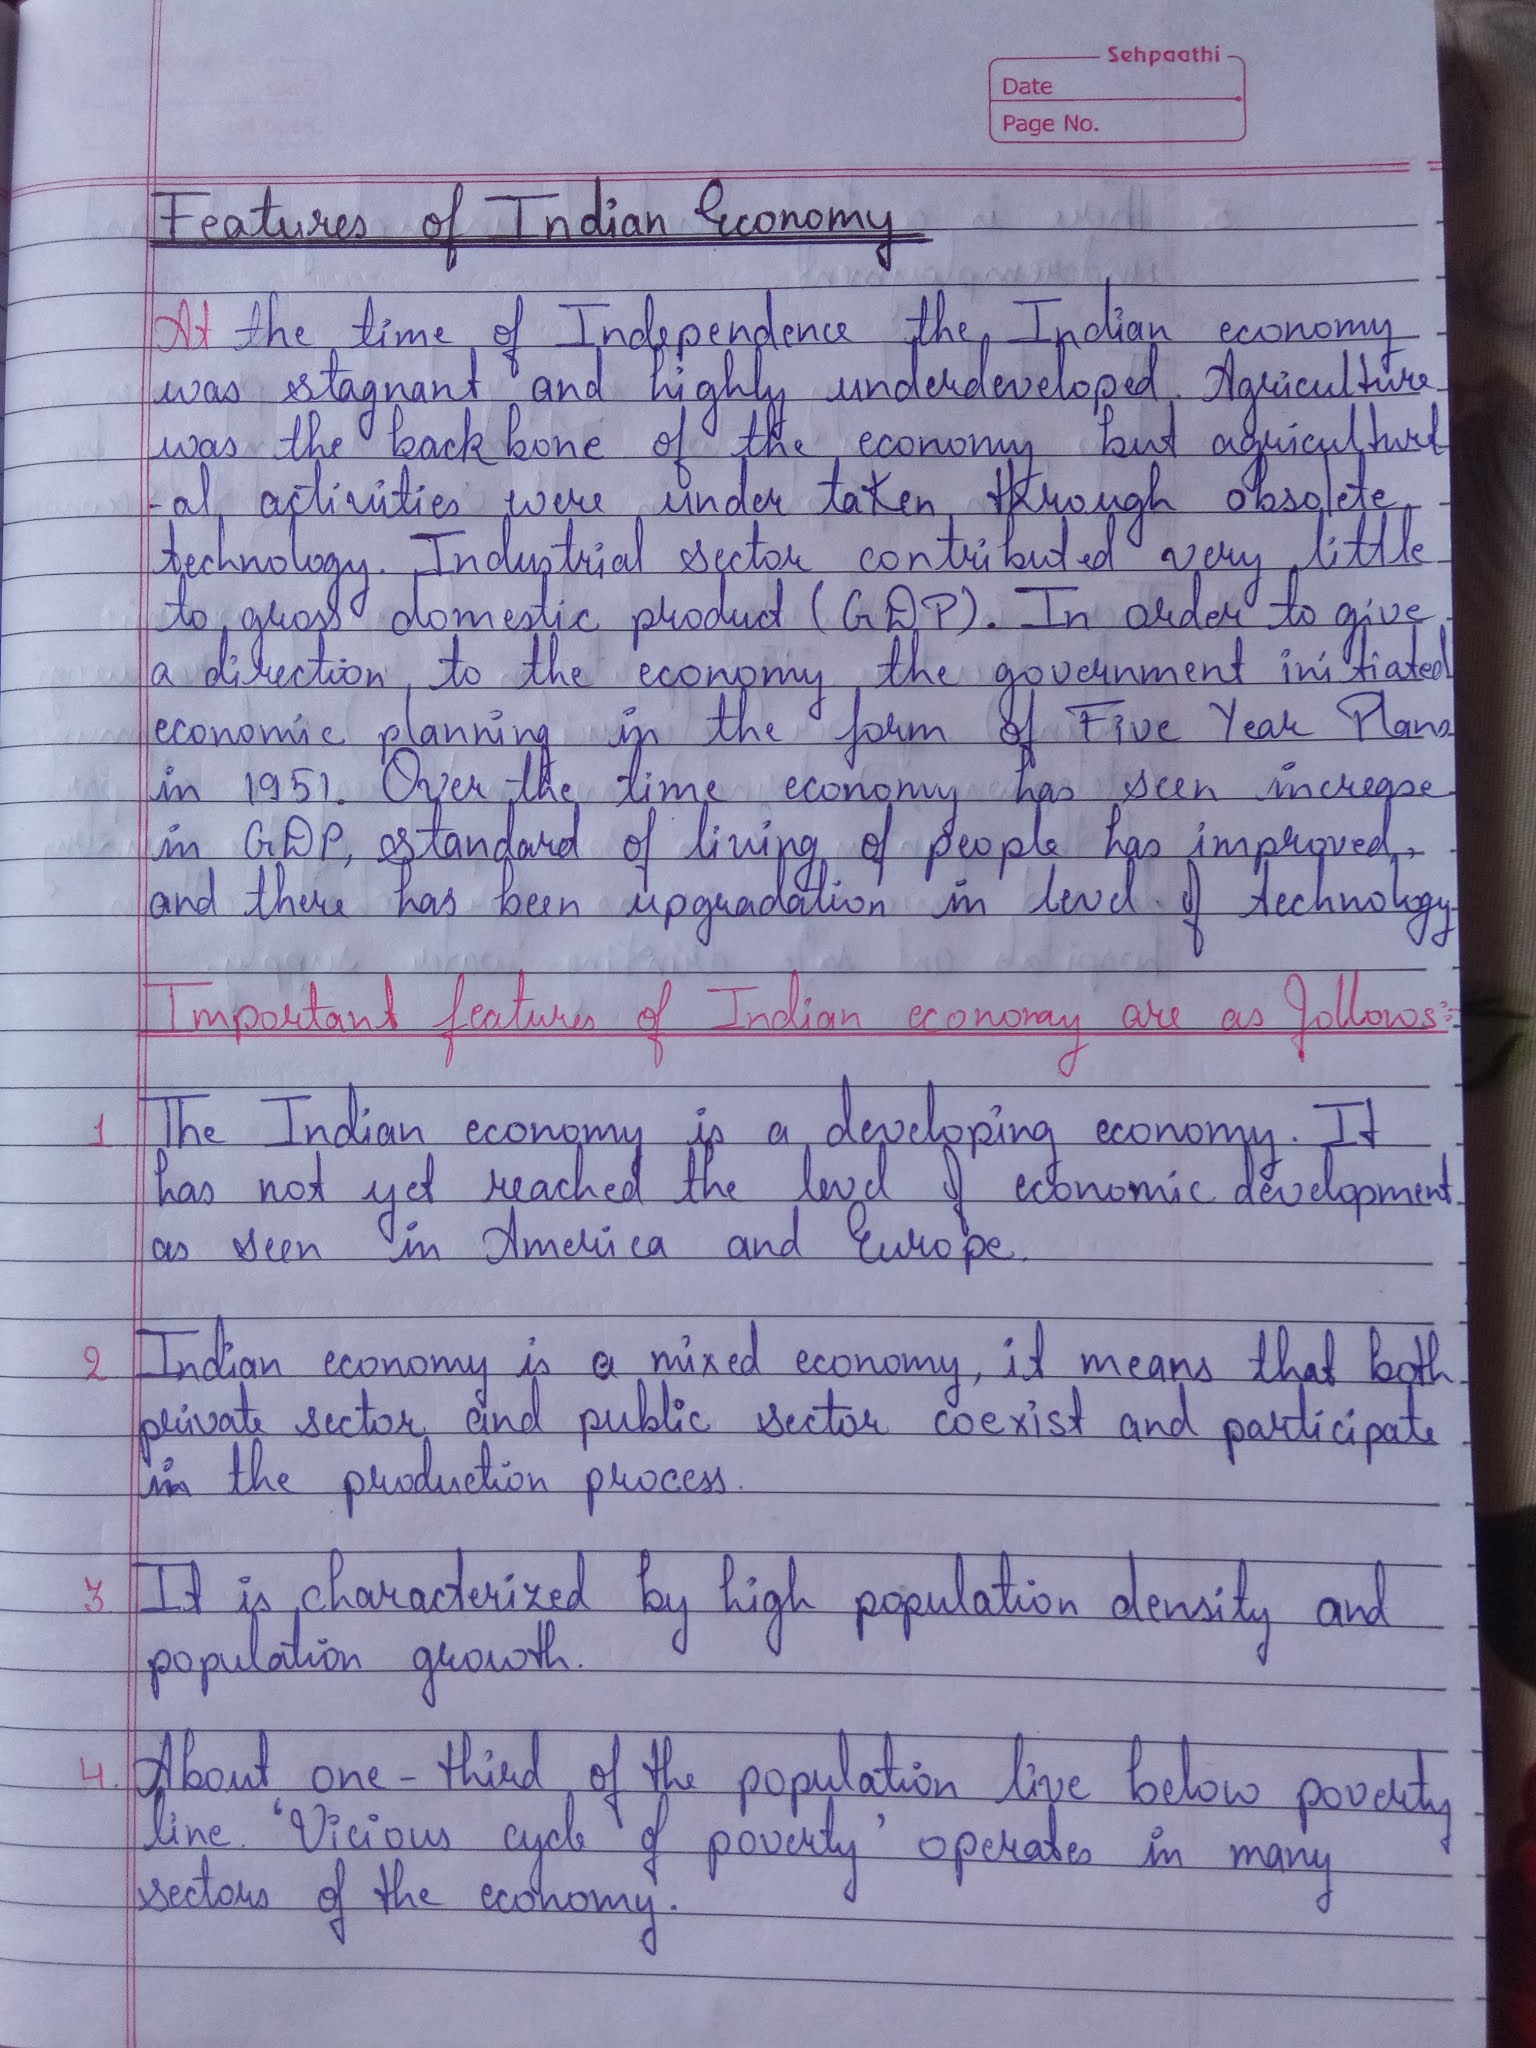 Sehpaathi
Date
Page No.
Features of Indian Economy
At the time of Independence the Indian economy
was stagnant and highly underdeveloped. Agriculture
was the back bone of the economy but agricultur
-al activities were under taken through obsolete
technology. Industrial sector contributed very little
to gross domestic product (GDP). In order to give
a direction to the economy the government initiated
economic planning in the form of Five Year Plans
in 1951. Over the time economy has seen increase
in GDP, standard of living of people has improved,
and there has been upgradation in level of technology
Important features of Indian economy are as follows:-
1 The Indian economy is a developing economy. It
has not yet reached the level of economic development
as seen in America and Europe.
2 Indian economy is a mixed economy, it means that both
private sector and public sector coexist and participate
in the production process.
3. It is characterized by high population density and
population growth.
4. About one-third of the population live below poverty
line. 'Vicious cycle of poverty' operates in many
sectors of the economy.